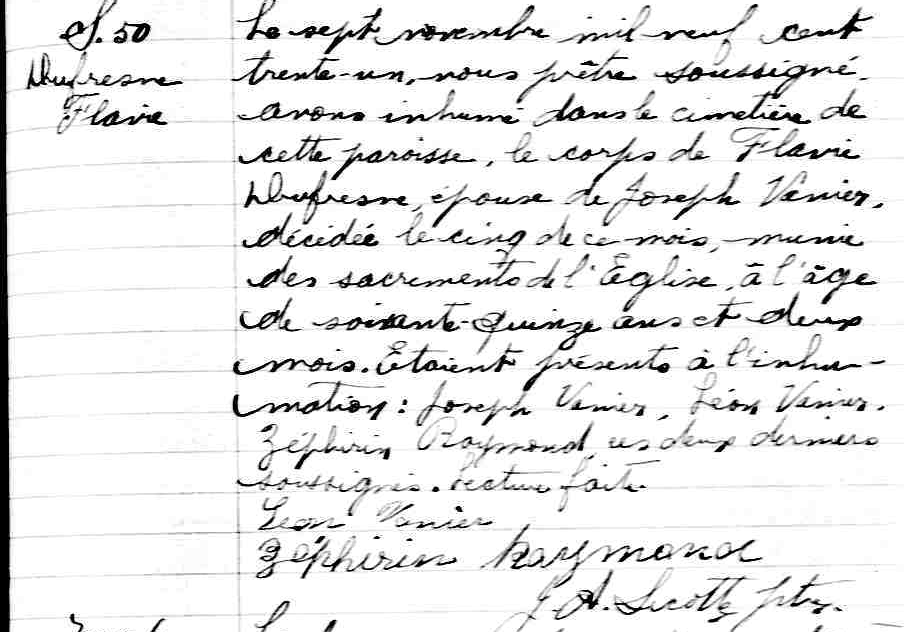 S. 50
Dufresne
Flavie
Le sept novembre mil neuf cent
trente-un, nous prêtre soussigné
avons inhumé dans le cimetière de
cette paroisse, le corps de Flavie
Dufresne, épouse de Joseph Vanier,
décédée le cinq de ce mois, munie
des sacrements de l'Eglise, à l'âge
de soixante-quinze ans et deux
mois. Etaient présents à l'inhu-
mation: Joseph Vanier, Léon Vanier,
Zéphirin Raymond, ces deux derniers
soussignés. Lecture faite
Léon Vanier
Zéphirin Raymond
J. A. ptre.